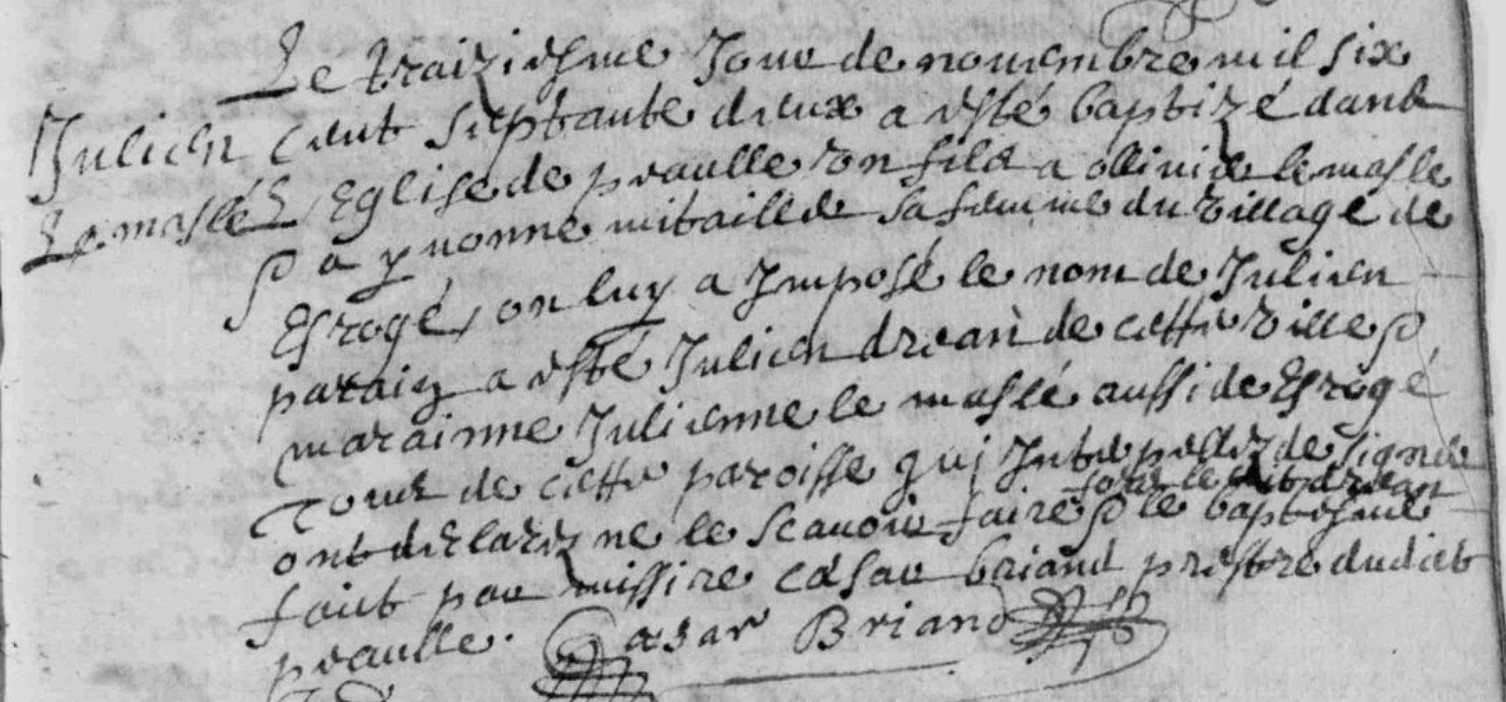 Le traiziesme Jour de nouembre mil six
Julien
Le maslé
cent septante deux a esté baptizé dans
L Eglise de preaulle un fils a ollivier le masle
& a yvonne mitaille sa femme du village de
Esrogé, on luy a Imposé le nom de Julien
parain a esté Julien drean de cette ville &
marainne Julienne le maslé aussi de Esrogé
tous de cette paroisse qui Interpellez de signer
ont declarez ne le scauoir faire & le baptesme
fors le dit drean
fait par missire cesar briand prestre dudict
preaulle.
Cæsar Briand